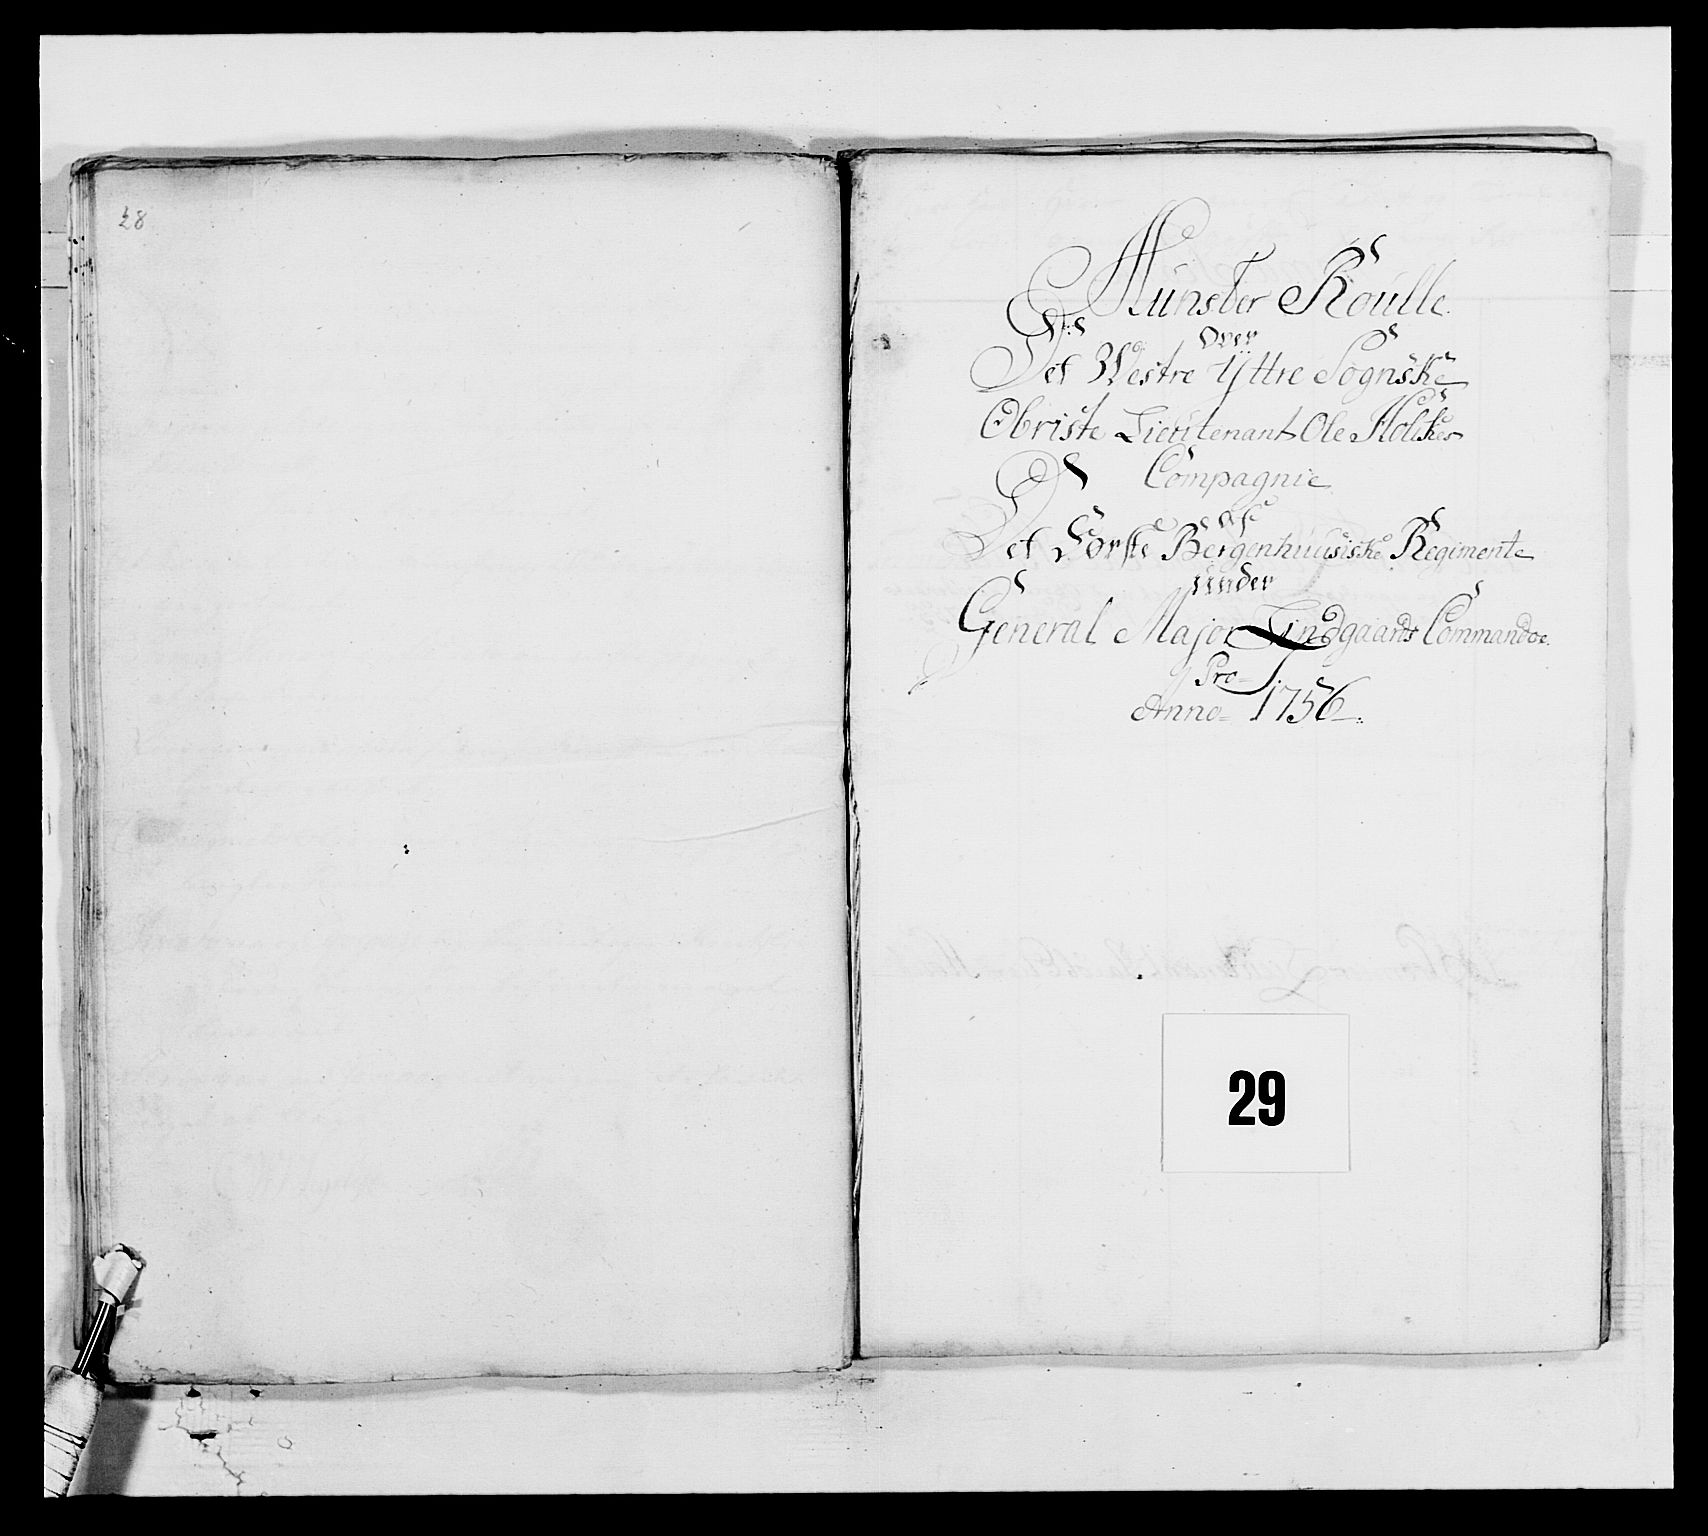 28
Münster Roulle
over
Det Westre Yttre Sognske
Obriste Lieutenant Ole Holckes
Compagnie
af
Det Første Bergenhuusiske Regimente
under
General Major Lindgaards Commandoe.
Pro
Anno 1756.
29